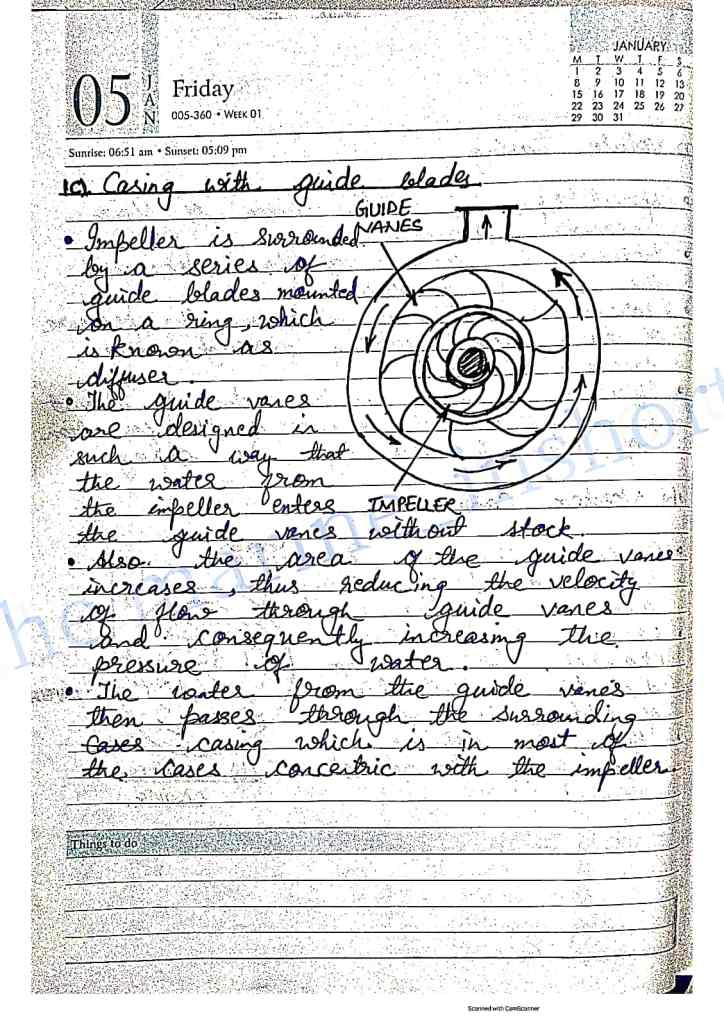 05
JAN
Friday
005-360 • WEEK 01
JANUARY
M T W T F S
1 2 3 4 5 6
8 9 10 11 12 13
15 16 17 18 19 20
22 23 24 25 26 27
29 30 31
Sunrise: 06:51 am • Sunset: 05:09 pm
(C) Casing with guide blades
GUIDE
VANES
IMPELLER
• Impeller is surrounded
by a series of
guide blades mounted
on a ring, which
is known as
diffuser.
• The guide vanes
are designed in
such a way that
the water from
the impeller enters
the guide vanes without stock.
• Also the area of the guide vanes
increases, thus reducing the velocity
of flow through guide vanes
and consequently increasing the
pressure of water.
• The water from the guide vanes
then passes through the surrounding
Cases casing which is in most of
the cases concentric with the impeller.
Things to do
Scanned with CamScanner